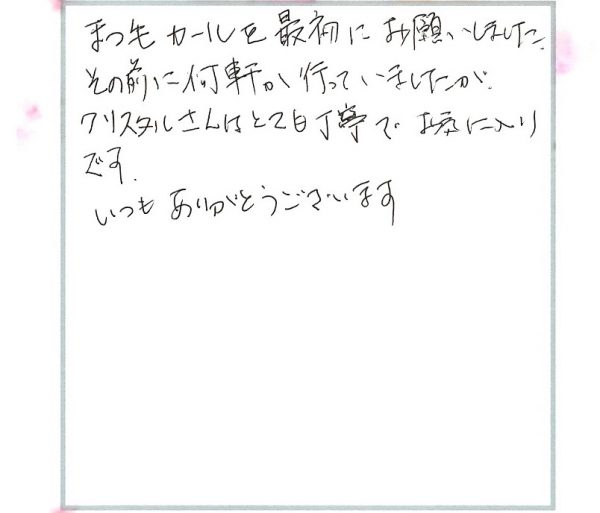 まつ毛カールを最初にお願いしました。
その前に何軒か行っていましたが、
クリスタルさんはとても丁寧でお気に入り
です。
いつもありがとうございます